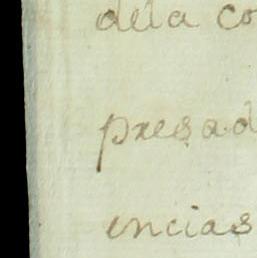 dela co
presad
encias